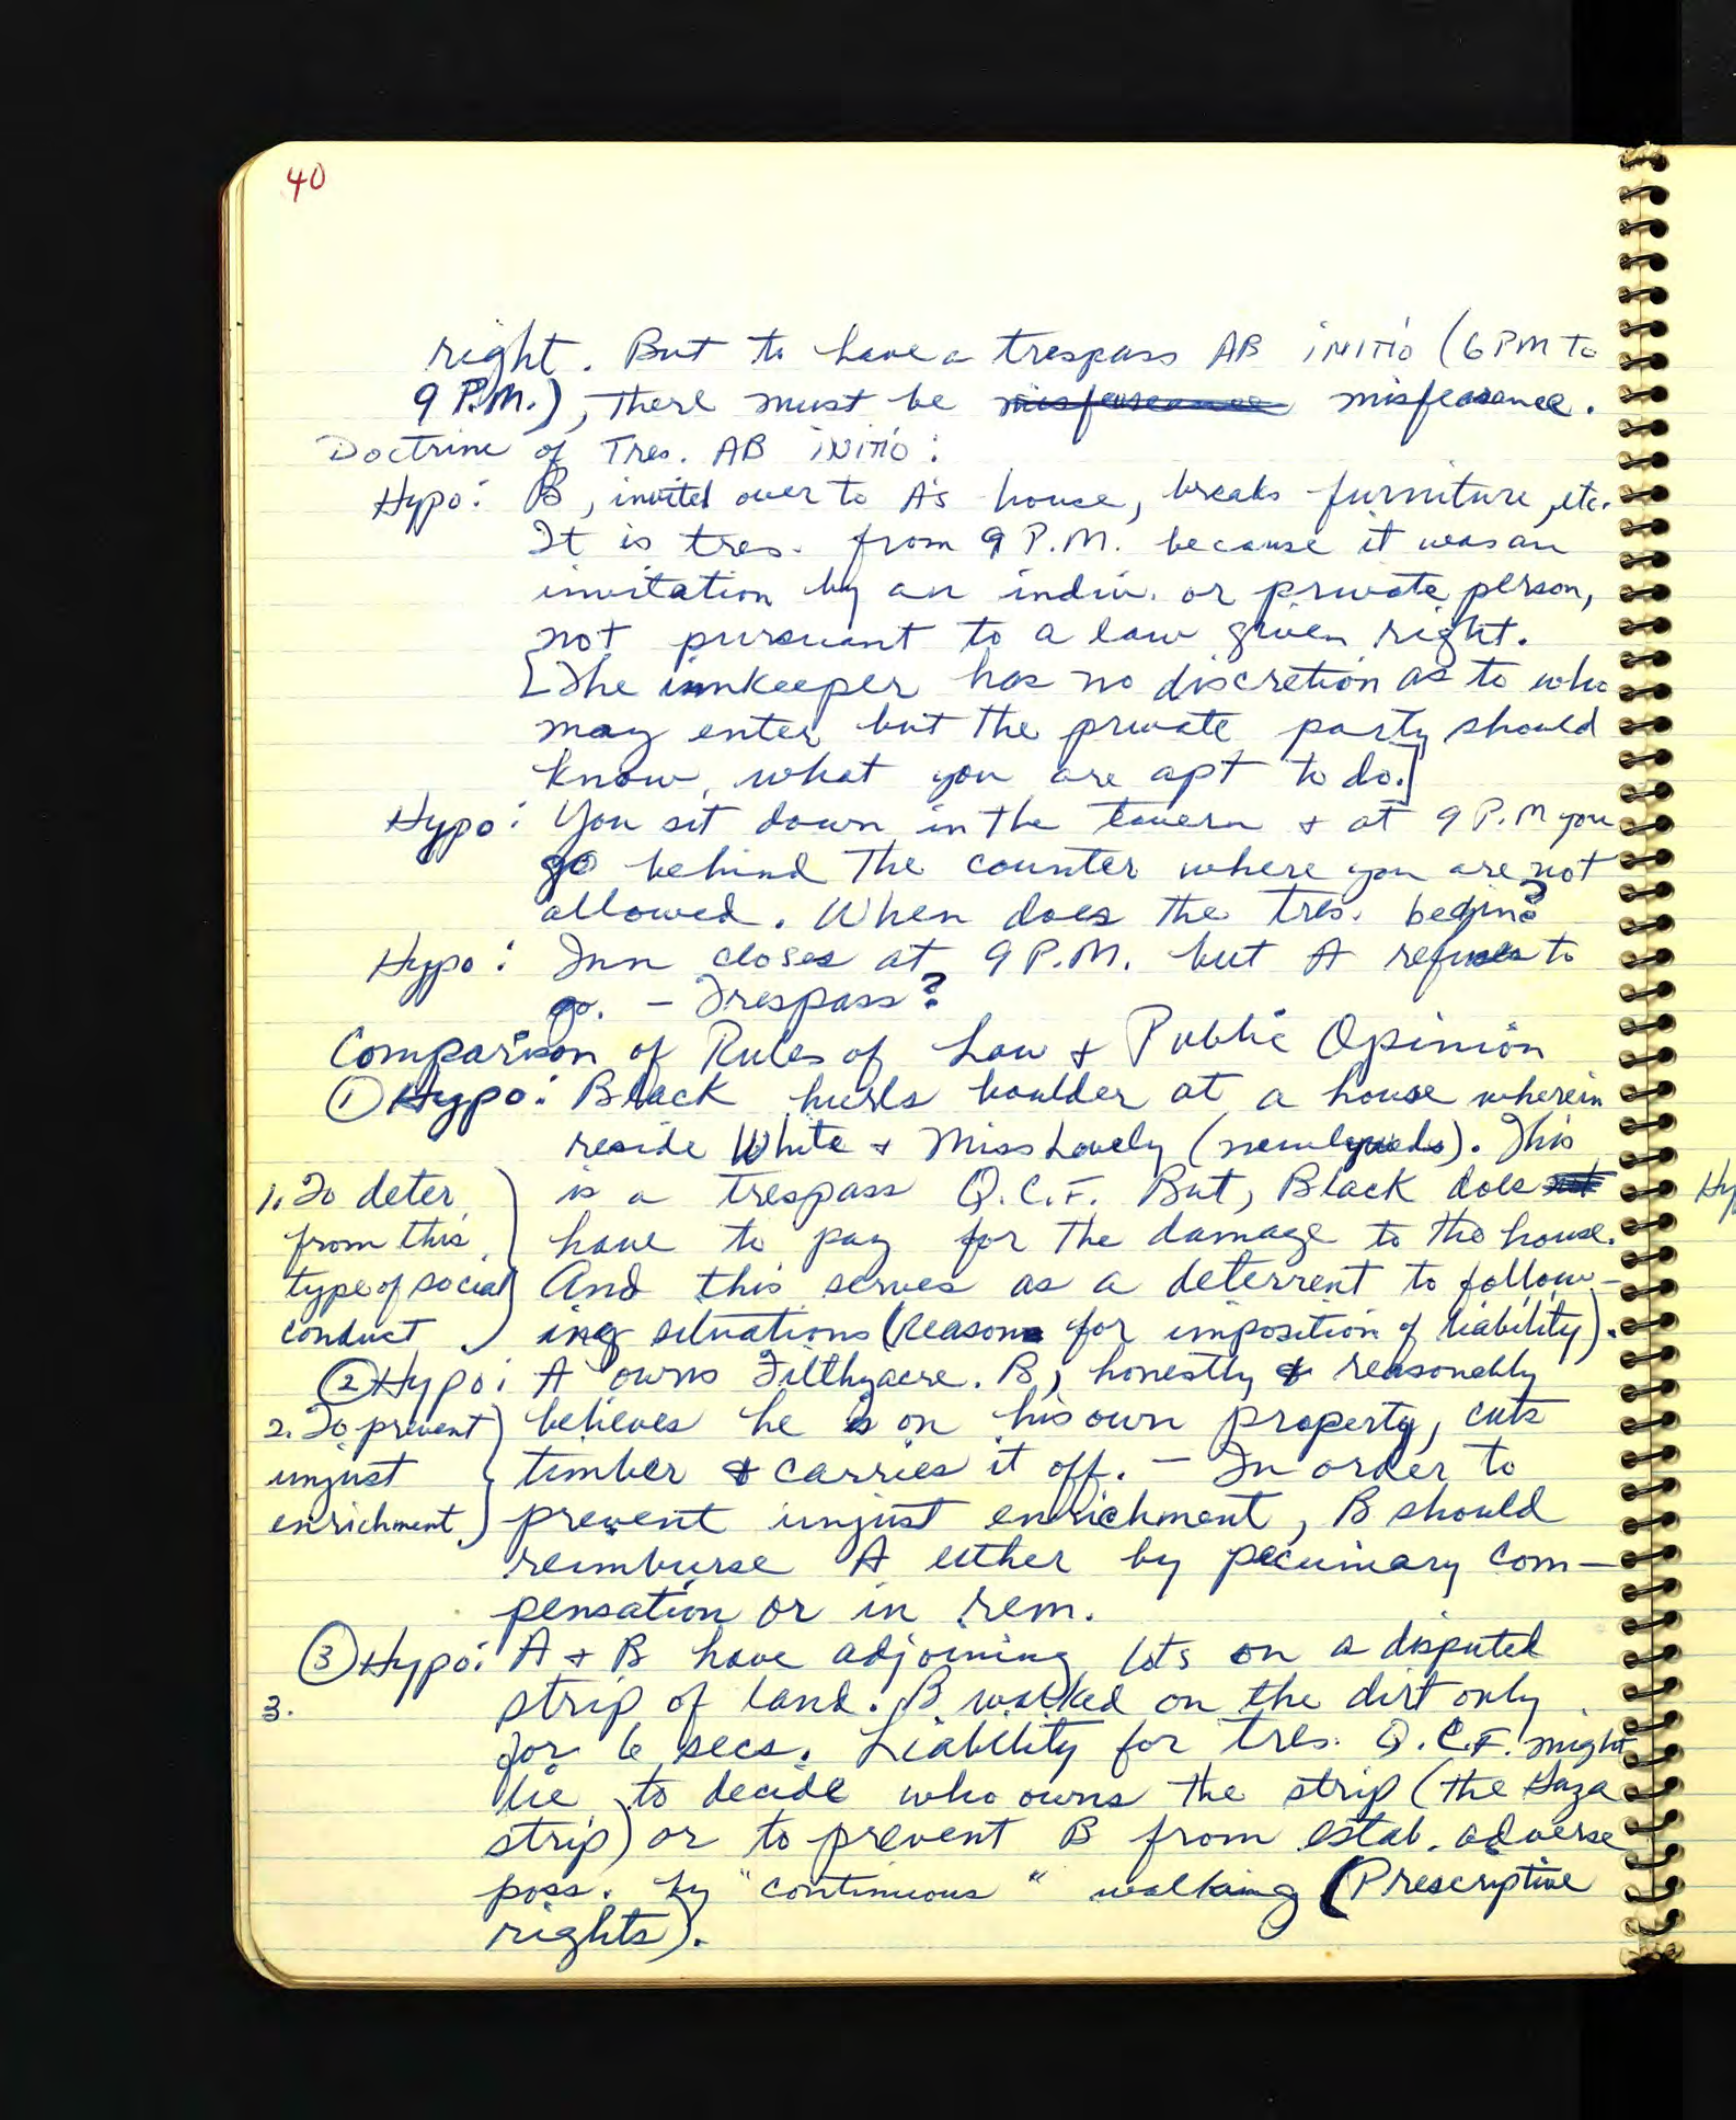 40
right. But to have a trespass AB initio (6 PM to
9 P.M.), there must be misfeaseance misfeasance.
Doctrine of Tres. AB initio:
Hypo: B, invited over to A's house, breaks furniture, etc.
It is tres. from 9 P.M. because it was an
invitation by an indiv. or private person,
not pursuant to a law given right.
[The innkeeper has no discretion as to who
may enter but the private party should
know what you are apt to do.]
Hypo: You sit down in the tavern + at 9 P.M you
go behind the counter where you are not
allowed. When does the tres. begin?
Hypo: Inn closes at 9 P.M. but A refuses to
go. - Trespass?
Comparison of Rules of Law + Public Opinion
① Hypo: Black hurls boulder at a house wherein
reside White + Miss Lovely (newlyweds). This
1. To deter
from this
type of social
conduct
is a trespass Q.C.F. But, Black does not
have to pay for the damage to the house.
And this serves as a deterrent to follow-
ing situations (Reasons for imposition of liability).
② Hypo: A owns Filthyacre. B, honestly & reasonably
2. To prevent
unjust
enrichment
believes he is on his own property, cuts
timber & carries it off. - In order to
prevent unjust enrichment, B should
reimburse A either by pecuniary com-
pensation or in rem.
③ Hypo: A + B have adjoining lots on a disputed
3.
strip of land. B walked on the dirt only
for 6 secs. Liability for tres. Q.C.F. might
lie to decide who owns the strip (the Gaza
strip) or to prevent B from estab. adverse
poss. by "continuous" walking (Prescriptive
rights).
Hy